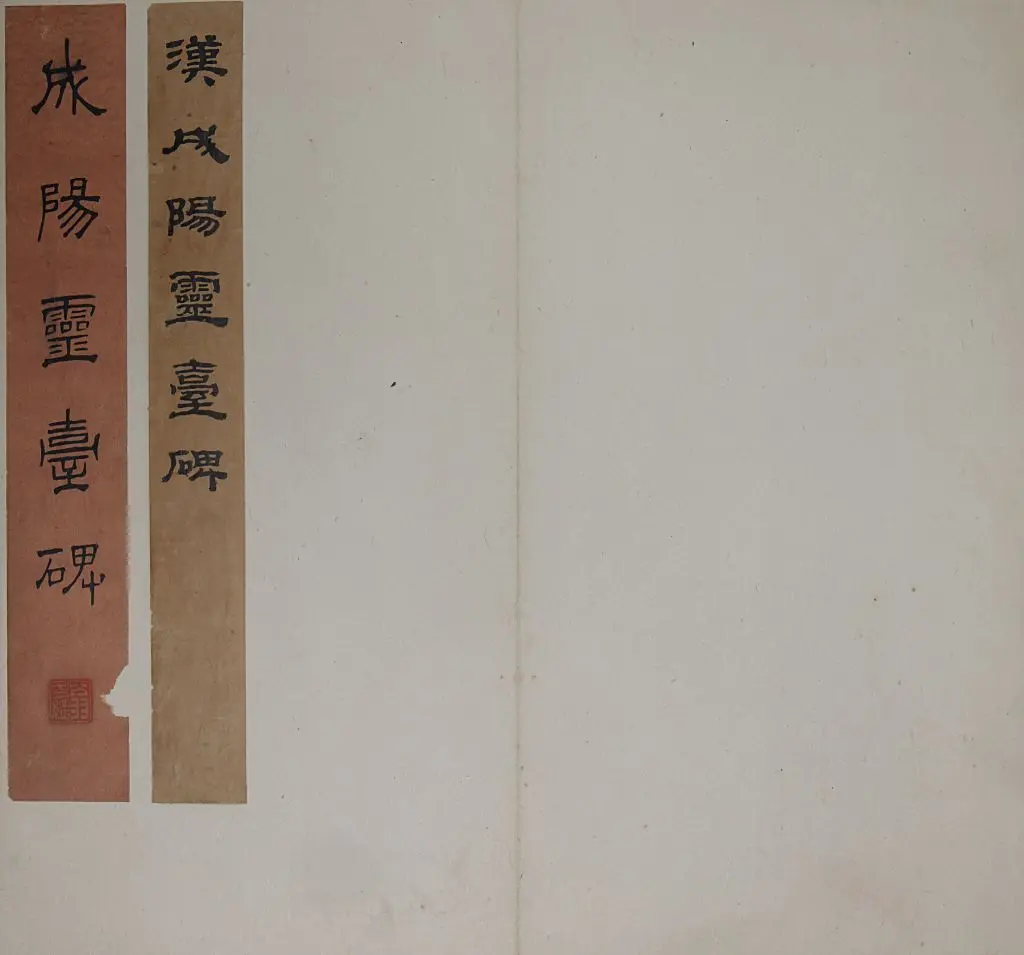 漢成陽靈臺碑
成陽靈臺碑